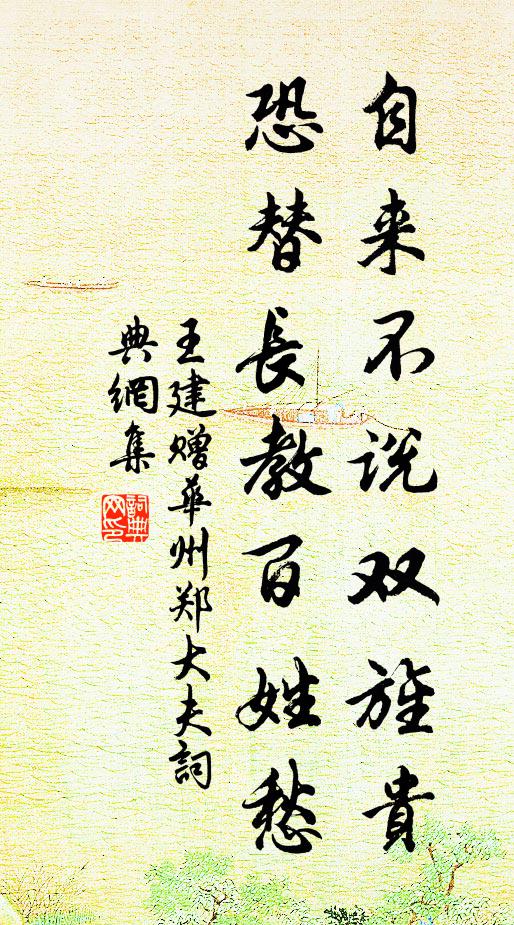 自来不说双旌貴
恐替長教百姓愁
王建赠华州郑大夫詞
典網集
詞典网印